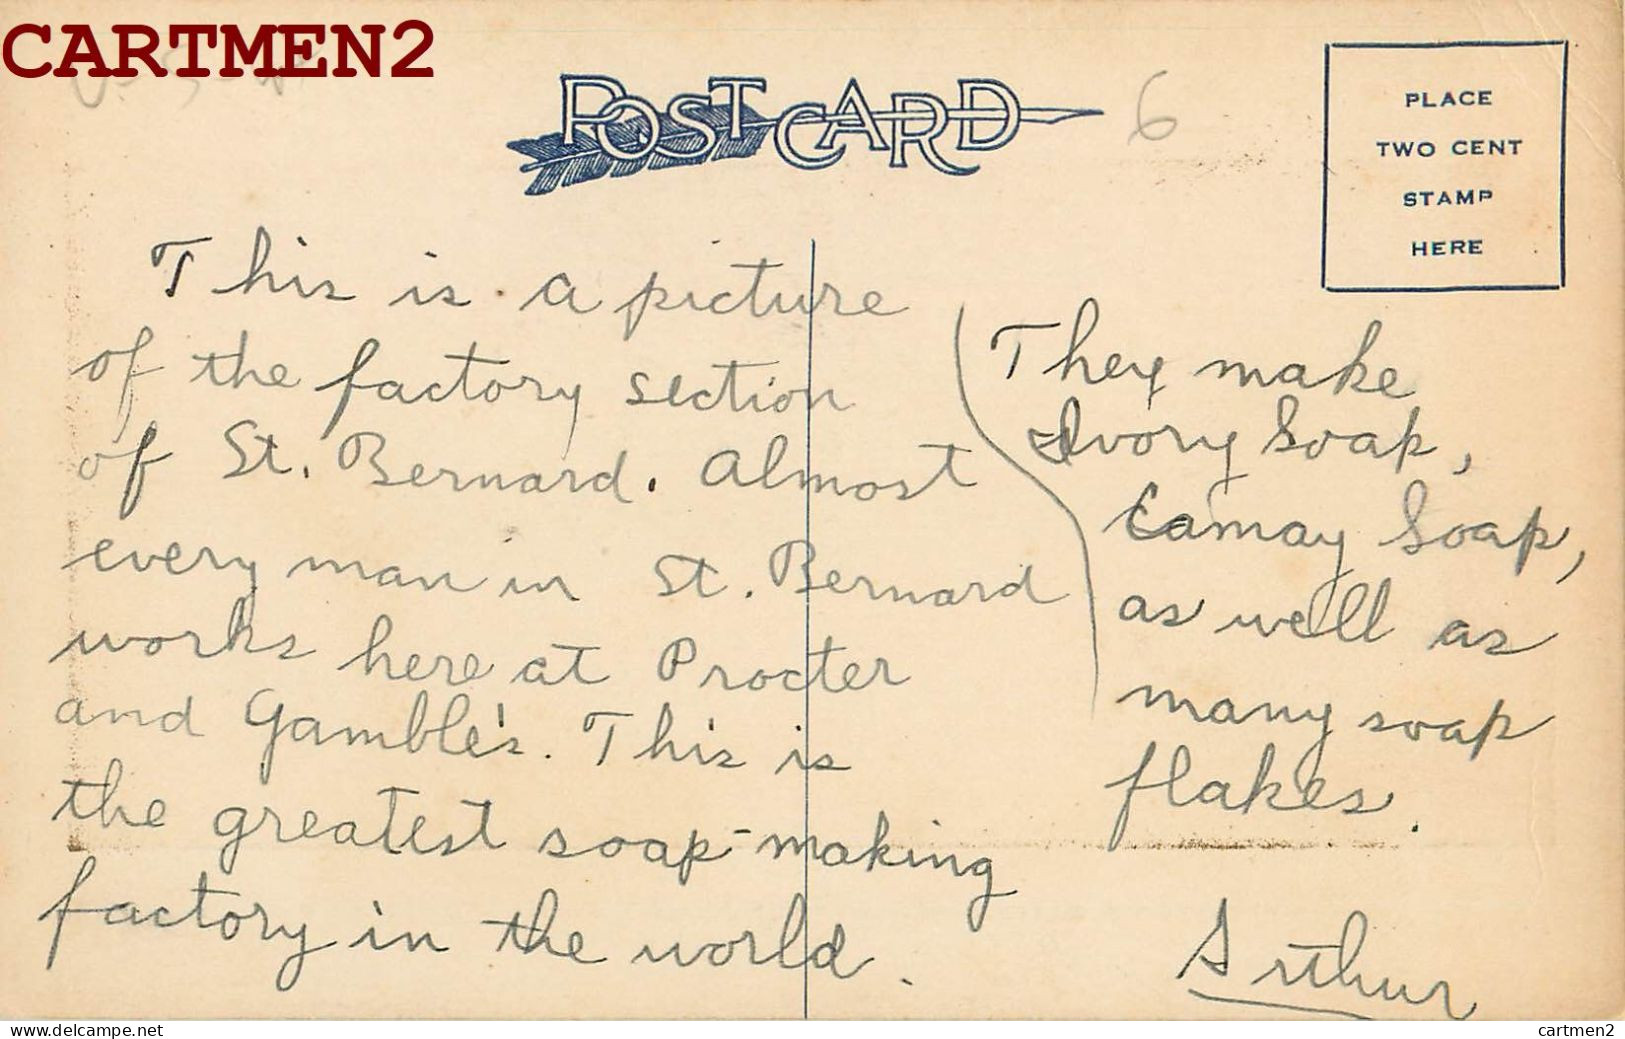 CARTMEN2
POST CARD
6
PLACE
TWO CENT
STAMP
HERE
This is a picture
of the factory section
of St. Bernard. Almost
every man in St. Bernard
works here at Procter
and Gamble's. This is
the greatest soap-making
factory in the world.
They make
Ivory Soap,
Camay Soap,
as well as
many soap
flakes.
Arthur
www.delcampe.net
cartmen2